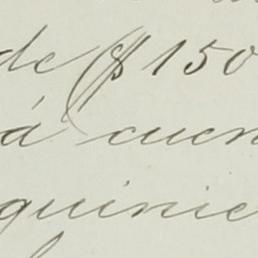 de ($ 150
á cuen
quinie